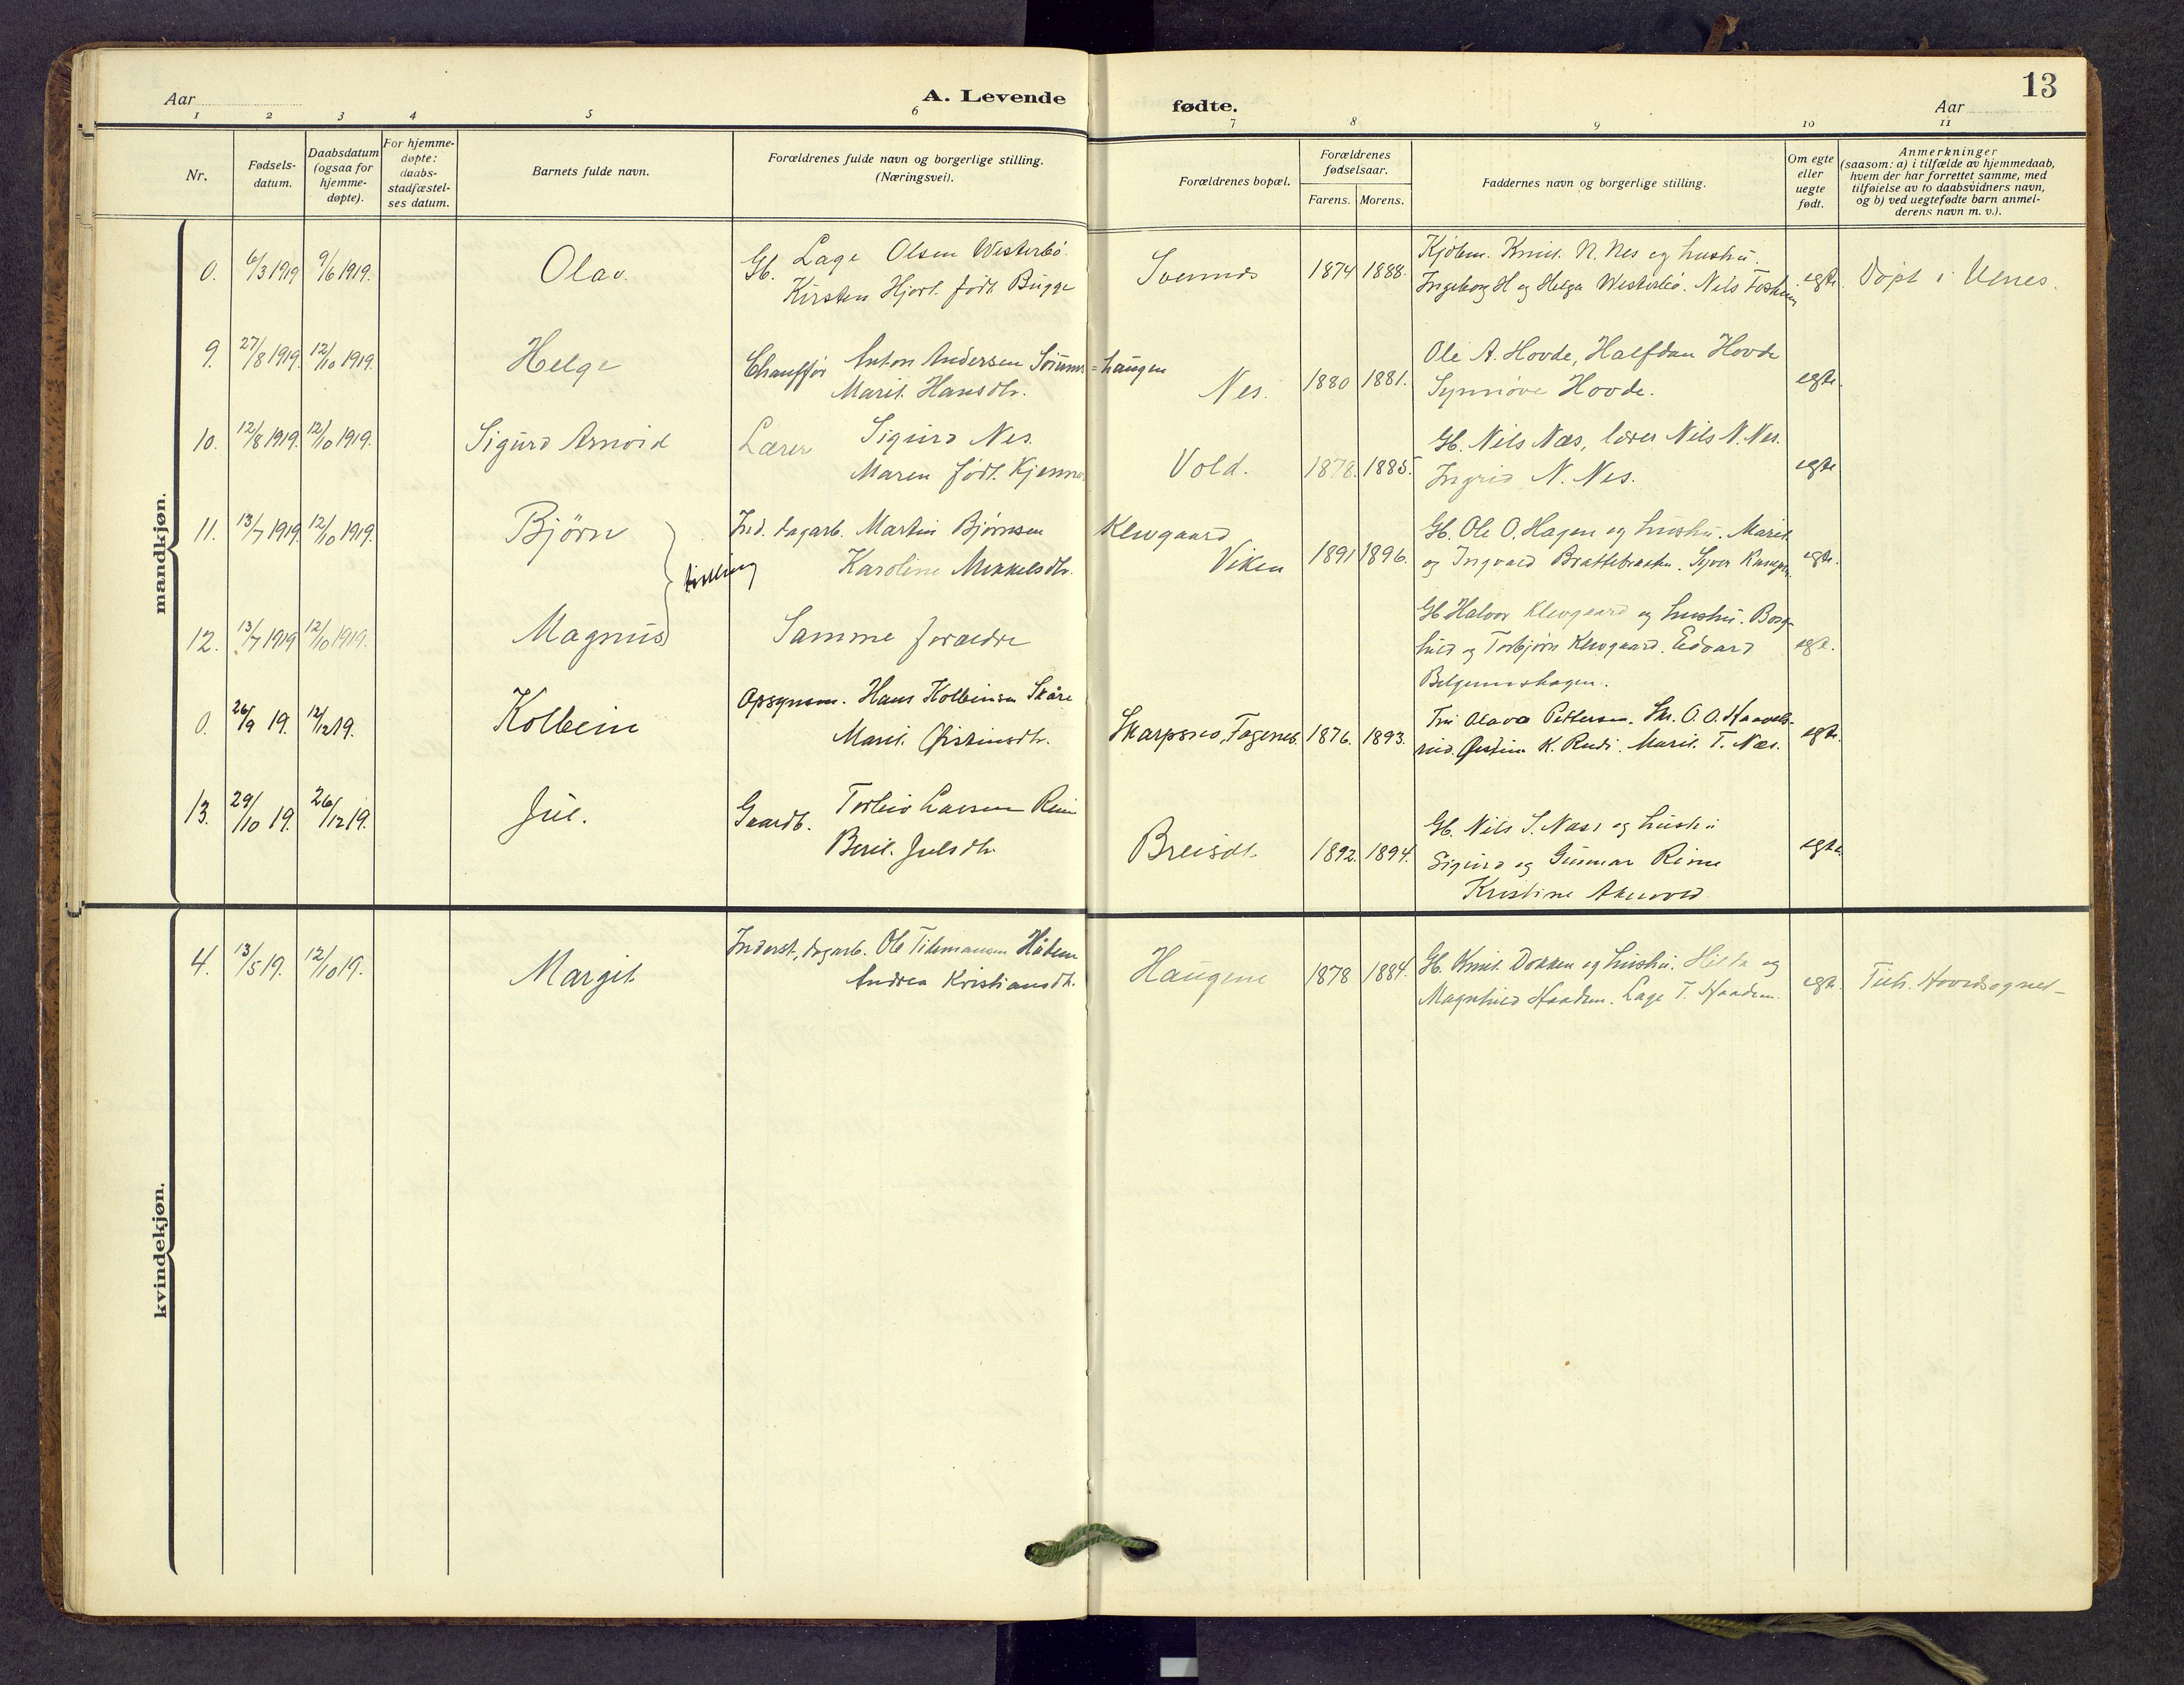 13
Aar
A. Levende
fødte.
Aar
1 2 3 4 5 6 7 8 9 10 11
Nr.
Fødsels-
datum.
Daabsdatum
(ogsaa for
hjemme-
døpte).
For hjemme-
døpte:
daabs-
stadfæstel-
ses datum.
Barnets fulde navn.
Forældrenes fulde navn og borgerlige stilling.
(Næringsvei).
Forældrenes bopæl.
Forældrenes
fødselsaar.
Farens. Morens.
Faddernes navn og borgerlige stilling.
Om egte
eller
uegte
født.
Anmerkninger
(saasom: a) i tilfælde av hjemmedaab,
hvem der har forrettet samme, med
tilføielse av to daabsvidners navn,
og b) ved uegtefødte barn anmel-
derens navn m. v.).
mandkjøn.
0. 6/3 1919 9/6 1919. Olav. Gb. Lage Olsen Westerbø.
Kirsten Hjort født Bugge
1874 1888.
Kjøbm. Knut N. Nes og hustru.
Ingeborg H og Helga Westerbø. Nils
egte. Døpt i Ulnes.
9. 27/8 1919. 12/10 1919. Helge Chauffør Anton Andersen Sørums=haugen
Marit Hansdtr.
Nes. 1880 1881.
Ole A. Hovde, Halfdan Hovde
Synnøve Hovde.
egte.
10. 12/8 1919. 12/10 1919. Sigurd Arnvid Lærer Sigurd Nes.
Maren født Kjenne
Vold. 1878. 1885.
Gb. Nils Næs, lærer Nils N. Nes.
Ingrid N. Nes.
egte
11. 13/7 1919. 12/10 1919. Bjørn Ind. dagarb. Martin Bjørnsen Klevgaard
Karoline Mikkelsdtr.
Viken 1891 1896.
Gb. Ole O. Hagen og hustru. Marit
og Ingvald Brattebraaten. Syver
egte.
tvilling
12. 13/7 1919 12/10 1919. Magnus Samme forældre
Gb Halvor Klevgaard og hustru. Borg-
hild og Torbjørn Klevgaard. Edvard
egte.
0. 26/9 19. 12/12 19. Kolbein Opsynsm. Hans Kolbeinsen Skåre
Marit Østensdtr.
Skarpsno, Fagernes. 1876. 1893.
Fru Olava Pettersen. Skr. O. O.
Østen K. Rudi. Marit T. Næs.
egte.
13. 29/10 19. 26/12 19. Jul. Gaardb. Torleiv Larsen
Berit Julsdtr.
1892. 1894.
Gb. Nils S. Næss og hustru
Sigurd og Gunnar
Kristine
egte.
kvindekjøn.
4. 13/5 19. 12/10 19. Margit Inderst, dagarb. Ole Tidemansen Hådem
Andrea Kristiansdtr.
Haugene 1878 1884.
Gb. Knut Dokken og hustru. Hilda og
Magnhild Haadem. Lage T. Haadem.
egte. Tilh. Hovedsognet